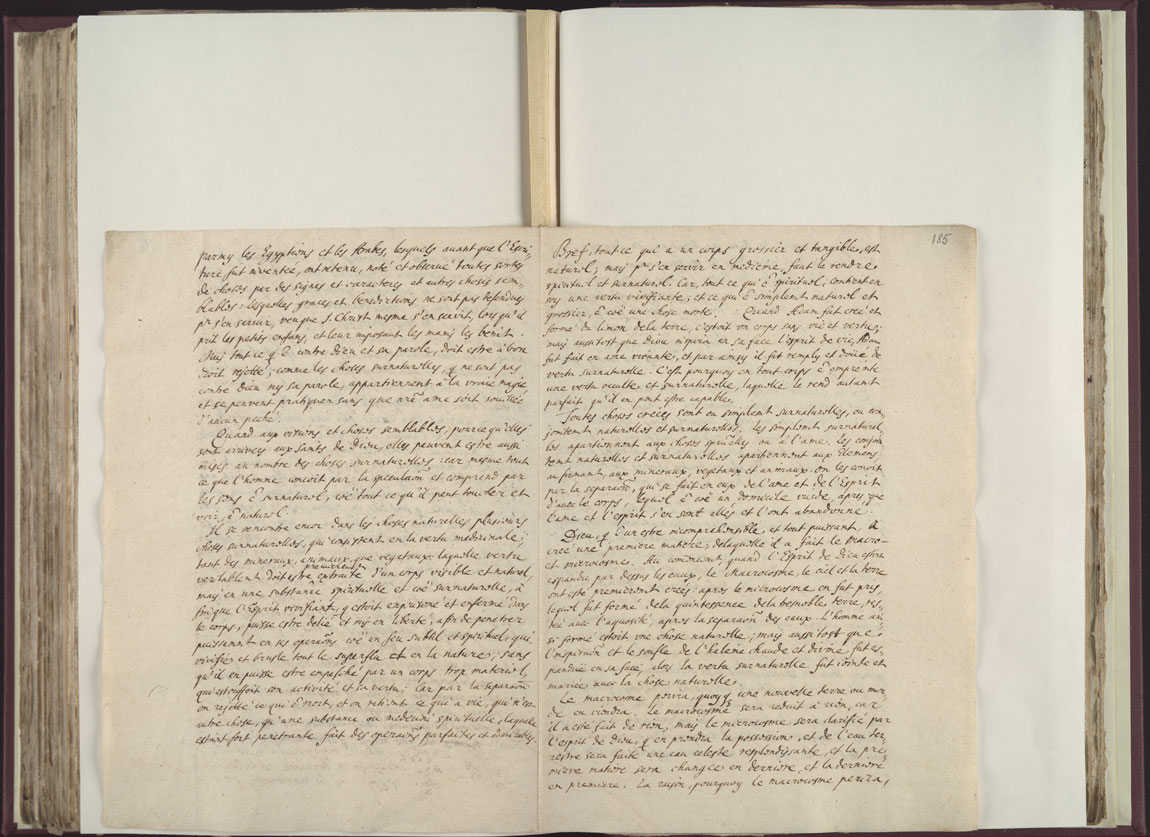 parmy les Egyptiens et les Arabes, lesquels auant que l'Escri-
ture fut inventée, ont retenu, noté et obserué toutes sortes
de choses par des signes et caracteres et autres choses sem-
blables: lesquelles graces et benedictions ne sont pas defendues
pr s'en servir, veu que J. Christ mesme s'en servit, lors qu'il
prit les petits enfans, et leur imposant les mains les benit.
Mais tout ce q' ẽ contre Dieu et sa parole, doit estre à bon
droit rejetté; comme les choses surnaturelles, q ne sont pas
contre Dieu ny sa parole, appartiennent à la vraie magie
et se peuvent pratiquer sans que nrẽ ame soit souillée
d'aucun peché.
Quand aux visions et choses semblables, pource qu'elles
sont arrivées aux saints de Dieu, elles peuvent estre aussi
mises au nombre des choses surnaturelles: car mesme tout
ce que l'homme conçoit par la speculaõn et comprend par
les sens ẽ surnaturel, coẽ tout ce qu'il peut toucher et
voir, ẽ naturel.
Il se rencontre encor dans les choses naturelles plusieurs
choses surnaturelles, qui consistent en la vertu medicinale;
tant des mineraux, animaux, que vegetaux: laquelle vertu
veritablemt doit estre premieremt extraite d'un corps visible et naturel,
mais en une substance spirituelle et coẽ surnaturelle, à
fin que l'Esprit vivifiant, q estoit enprisoné et enfermé dans
le corps, puisse estre delié et mis en liberté, afin de penetrer
puissamt en ses operaõns coẽ un feu subtil et spirituel, qui
vivifie et brusle tout le superflu et en la nature; sans
qu'il en puisse estre empesché par un corps trop materiel,
qui estouffoit son activité et la vertu; car par la separaõn
on rejette ce qui ẽ mort, et on retient ce qui a vie, qui n'est
autre chose, qu'une substance ou medecine spirituelle, laquelle
estant fort penetrante fait des operaõns parfaites et admirables.
185
Bref, tout ce qui a un corps grossier et tangible, est
naturel; mais pr s'en servir en medecine, faut le rendre
spirituel et surnaturel. Car, tout ce qui ẽ spirituel, contient en
soy une vertu vivifiante; et ce qui ẽ simplemt naturel et
grossier, ẽ coẽ une chose morte. Quand Adam fut creé et
formé du limon de la terre, c'estoit un corps sans vie et vertu;
mais aussi tost que Dieu inspira en sa face l'esprit de vie, Adam
fut fait en ame vivante, et par ainsy il fut remply et doüé de
vertu surnaturelle. C'est pourquoy en tout corps ẽ empreinte
une vertu occulte et surnaturelle, laquelle le rend autant
parfait qu'il en peut estre capable.
Toutes choses creées sont ou simplemt surnaturelles, ou con-
jointemt naturelles et surnaturelles: les simplemt surnaturel
les apartiennent aux choses spirũelles ou à l'ame, les conjoin
temt naturelles et surnaturelles apartiennent aux Elemens,
au firmamt, aux mineraux, vegetaux et animaux. on les conoit
par la separaõn, qui se fait en eux de l'ame et de l'Esprit
d'avec le corps, lequel ẽ coẽ un domicile vuide, apres que
l'ame et l'esprit s'en sont allés et l'ont abandonné.
Dieu, q ẽ un estre incomprehensible, et tout puissant, a
creé une premiere matiere; de laquelle il a fait le macro-
et microcosme. Au comencemt, quand l'Esprit de Dieu estoit
espandu par dessus les eaux, le Macrocosme, le ciel et la terre
ont esté premieremt creés: apres le microcosme en fut pris,
lequel fut formé de la quintessence de la besnoble terre, res-
tée avec l'aquosité, apres la separaõn des eaux. L'homme ain
si formé estoit une chose naturelle; mais aussi tost que
l'inspiraõn et le soufle de l'haleine chaude et divine fut es-
pandue en sa face, alors la vertu surnaturelle fut jointe et
mariée avec la chose naturelle.
Le macrocosme perira, quoyq une nouvelle terre ou mon
de en viendra. le macrocosme sera reduit à rien, car
il a esté fait de rien, mais le microcosme sera clarifié par
l'esprit de Dieu, q en prendra la possession, et de l'eau ter-
restre sera faite une eau celeste resplendissante, et la pre-
miere matiere sera changée en derniere, et la derniere
en premiere. La raison, pourquoy le macrocosme perira,